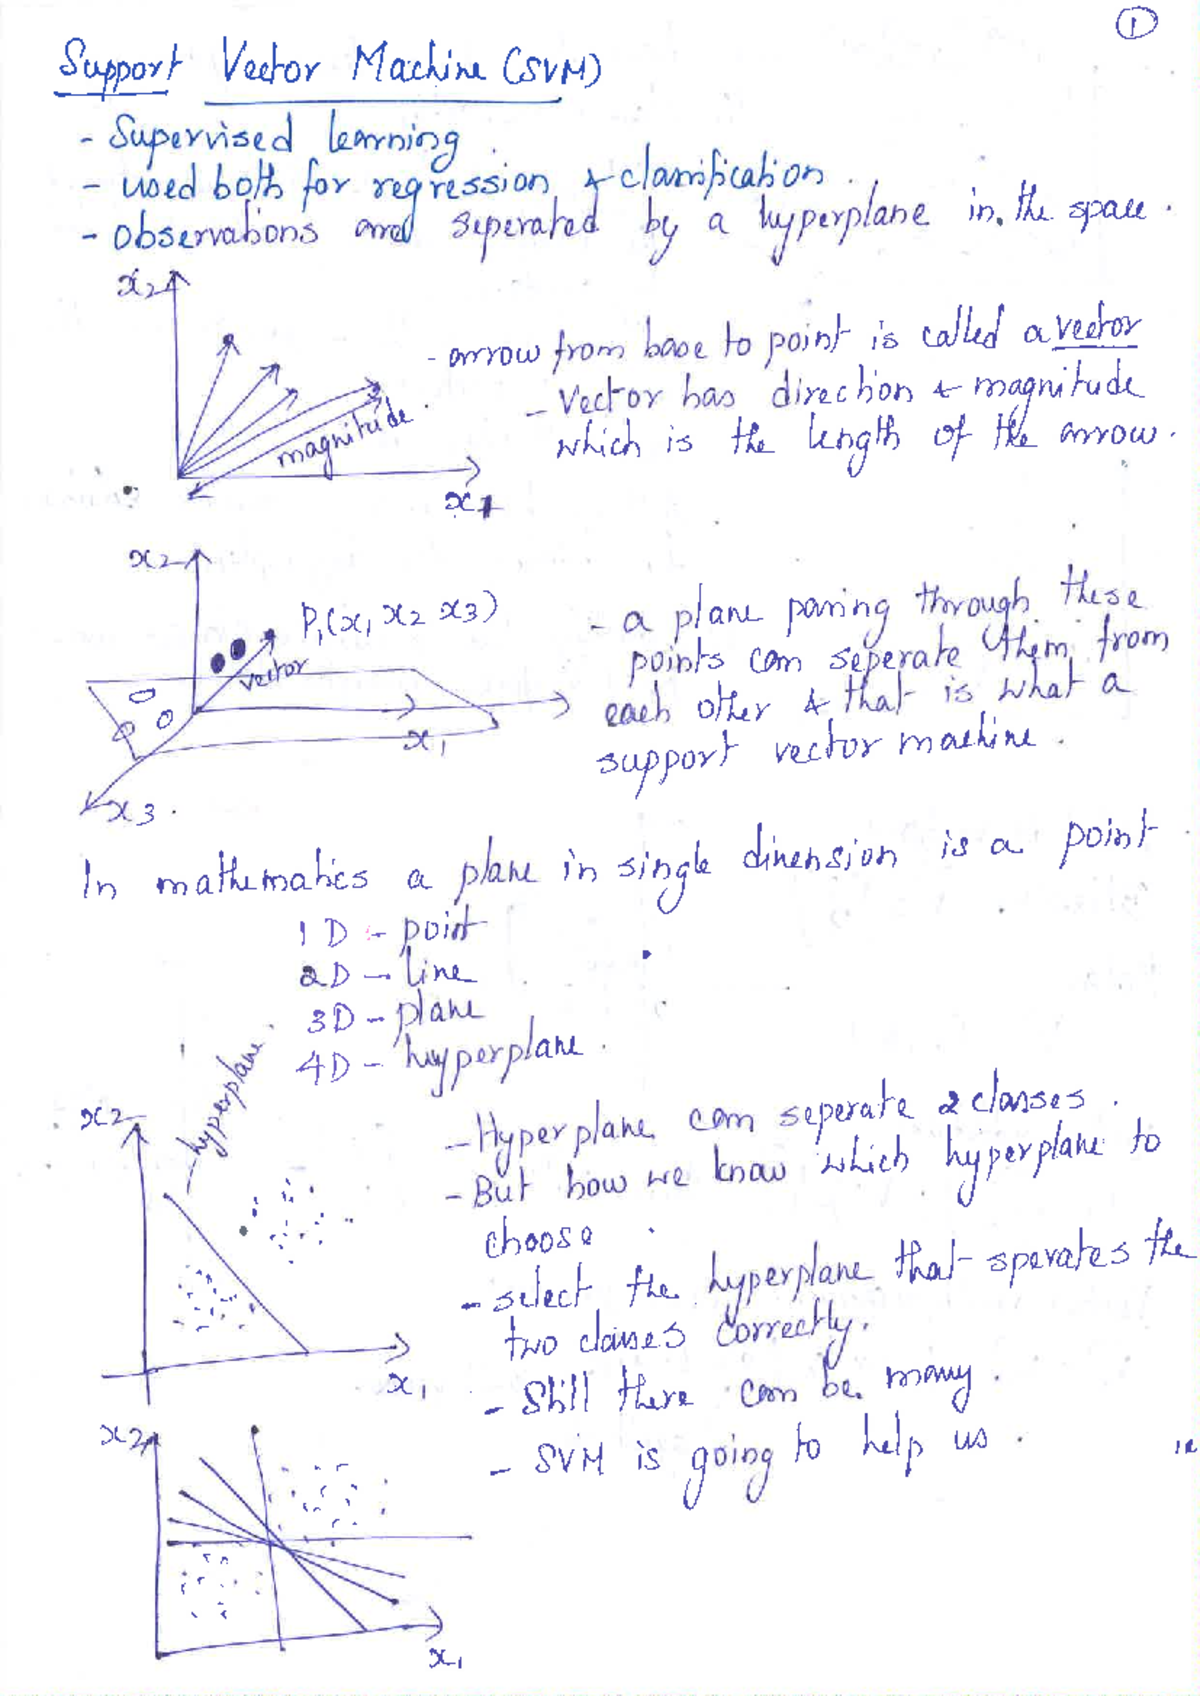 1
Support Vector Machine (SVM)
- Supervised learning.
- used both for regression & classification.
- Observations are seperated by a hyperplane in the space.
x2
- arrow from base to point is called a vector
- Vector has direction & magnitude
which is the length of the arrow.
magnitude
x1
x2
P1(x1 x2 x3)
vector
x1
x3
- a plane passing through these
points can seperate them from
each other & that is what a
support vector machine.
In mathematics a plane in single dimension is a point
1D - point
2D - line
3D - plane
4D - hyperplane.
x2
- hyperplane.
x1
- Hyperplane can seperate 2 classes.
- But how we know which hyperplane to
choose
- select the hyperplane that sperates the
two classes correctly.
- Still there can be many.
- SVM is going to help us.
x2
x1